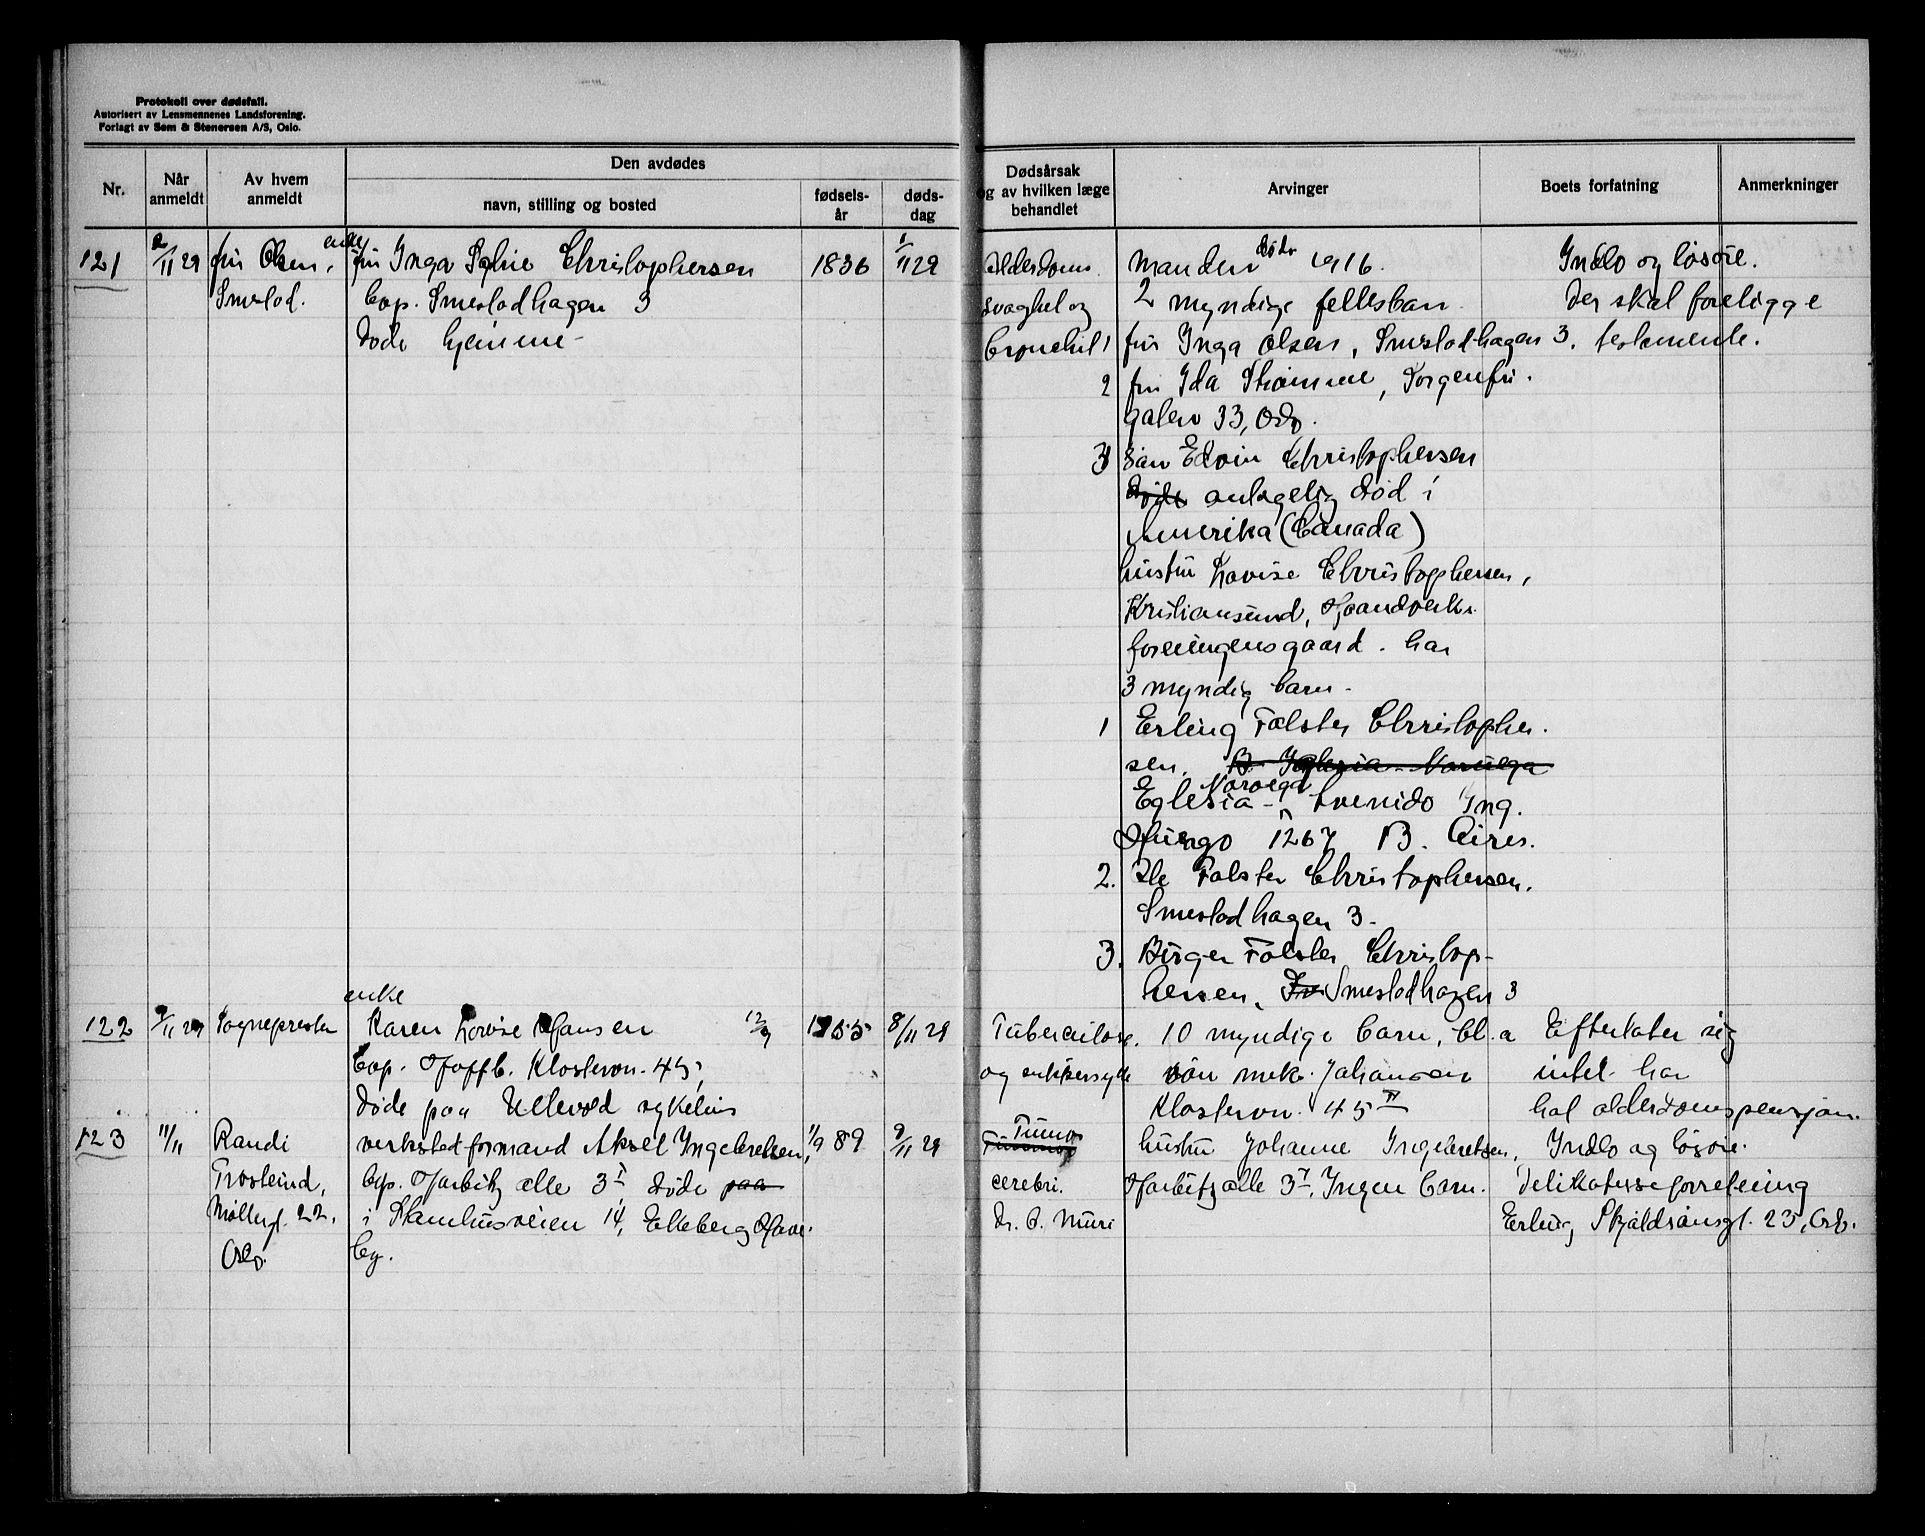 Protokoll over dødsfall.
Autorisert av Lensmennenes Landsforening.
Forlagt av Sem & Stenersen A/S, Oslo.
Nr.
Når anmeldt
Av hvem anmeldt
Den avdødes
navn, stilling og bosted
fødselsår
dødsdag
Dødsårsak og av hvilken læge behandlet
Arvinger
Boets forfatning
Anmerkninger
121
2/11 29
fru Olsen,
Smestad.
enke
fru Inga Sofie Christophersen
bop. Smestadhagen 3
døde hjemme
1836
1/11 29
Alderdoms
svaghet og
bronchit
Manden døde 1916.
2 myndige fellesbarn
1 fru Inga Olsen, Smestadhagen 3.
2 fru Ida Strømme, Sorgenfri
gaten 33, Oslo.
3 søn Edvin Christophersen
døde antagelig død i
Amerika (Canada)
hustru Lovise Christophersen,
Kristiansund, Haandverks
foreningensgaard. har
3 myndig barn.
1 Erling Falster Christopher
sen.
Eglesia Noroega
1267 B. Aires.
2. Falster Christophersen.
Smestadhagen 3.
3. Birger Falster Christop-
hersen, Smestadhagen 3
Indbo og løsøre.
Der skal foreligge
testamente.
122
9/11 29
Sognepresten
enke
Karen Lovise Hansen
bop. Hoffsb. Klostervn. 45,
døde paa Ullevål sykehus
12/9
1855
8/11 29
Tuberculose
og sukkersyke
10 myndige barn, bl. a
søn mek. Johansen
Klostervn. 45 II
Efterlater sig
intet. har
hat alderdomspensjon.
123
11/11
Randi
Trosterud,
Møllergt. 22.
Oslo.
verkstedformand Aksel Ingebretsen,
bop. Harbitz alle 3 I døde paa
i Stamhusveien 14, Ekeberg Have
by.
1/9 89
9/11 29
Tumor
cerebri.
Dr. B. Muri
hustru Johanne Ingebretsen,
Harbitz alle 3 I. Ingen barn.
Indbo og løsøre.
Delikatesseforretning
Erling Skjaldsonsgt. 23, Oslo.